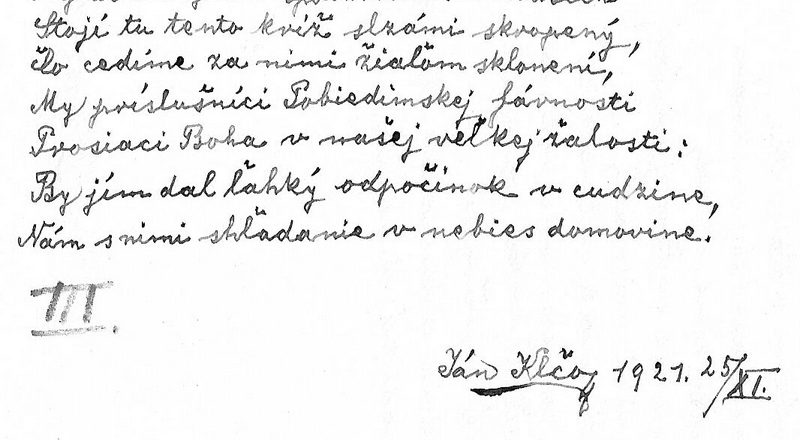 Stojí tu tento kríž slzámi skropený,
Čo cedíme za nimi žialom sklonení,
My príslušníci Pobiedimskej fárnosti
Prosiaci Boha v našej veľkej žalosti:
By jím dal ľahký odpočinok v cudzine,
Nám s nimi shľadanie v nebies domovine.
III.
Ján Klčo 1921. 25/XI.